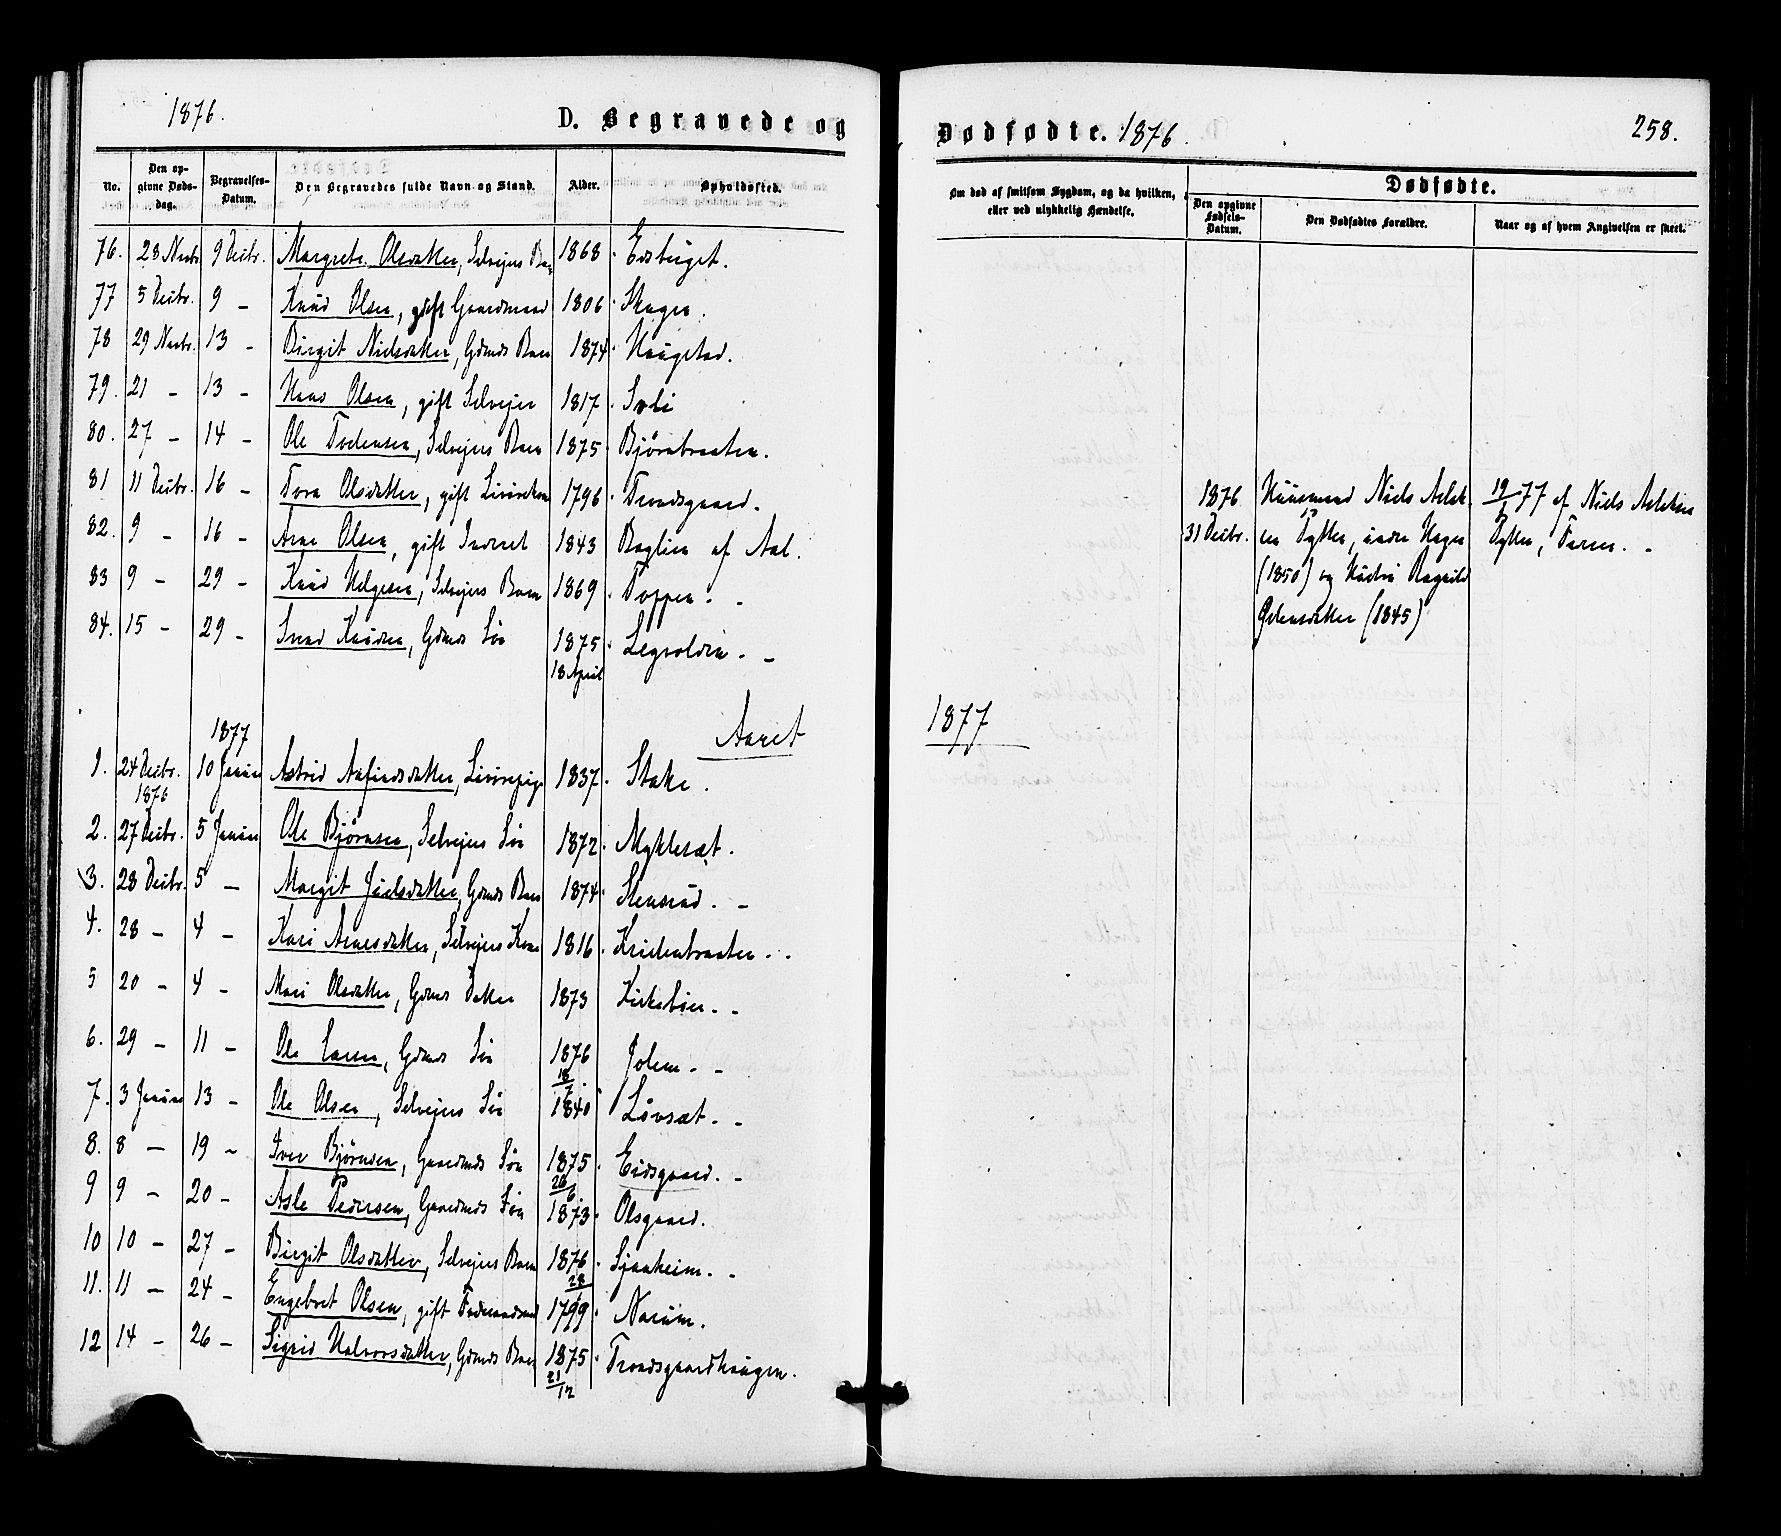 1876.
D. Begravede og
No.
Den op-
givne Døds-
dag.
Begravelses-
Datum.
Den Begravedes fulde Navn og Stand.
Alder.
Opholdssted.
76. 28 Novbr. 9 Decbr. Margrete Olsdatter, Selvejers Barn 1868.
77 5 Decbr. 9 – Knud Olsen, gift Gaardmand 1806. Hagen.
78 29 Novbr. 13 – Birgit Nielsdatter, Gdmds Barn 1874. Haugstad.
79. 21 – 13 – Hans Olsen, gift Selvejer 1817.
80. 27 – 14 – Ole Torkensen, Selvejers Barn 1875. Bjørnebraaten.
81 11 Decbr. 16 – Tora Olsdatter, gift 1796. Trondsgaard.
82. 9 – 16 – Arne Olsen, gift Inderst 1843 Baglien af Aal.
83 9 – 29 – Knud Helgesen, Selvejers Barn 1869. Toppen. –
84. 15 – 29 – Svend Knudsen, Gdmds Søn 1875.
18 April
Aaret
1877
1. 24 Decbr. 10 Januar Astrid Arfindsdatter, 1837. Stake.
1876
2. 27 Decbr. 5 Januar Ole Bjørnsen, Selvejers Søn 1872. Myklesæt.
3. 28 Decbr. 5 – Margit Juelsdatter, Gdmds Barn 1874. Stensrud. –
4. 28 – 4 – Kari Arnesdatter, Selvejers Kone 1816.
5 20 – 4 – Mari Olsdatter, Gdmds Datter 1873 Kirkebøen. –
6. 29 – 11 – Ole Larsen, Gdmds Søn 1876 Jolem. –
18/7
7. 3 Januar 13 – Ole Olsen, Selvejers Søn 1840 Løvsæt. –
8. 8 – 19 – Iver Bjørnsen, Gaardmds Søn 1875. Eidsgaard. –
26/6
9 9 – 20 – Asle Pedersen, Gaardmds Søn 1873. Olsgaard.
10 10 – 27 – Birgit Olsdatter, Selvejers Barn 1876. Sjaaheim. –
11. 11 – 24 – Engebret Olsen, gift 1799. Norum.
12 14 – 26 – Sigrid Halvorsdatter, Gdmds Barn 1875. Trondsgaardhaugen.
21/12
Dødfødte. 1876
258.
Om død af smitsom Sygdom, og da hvilken,
eller ved ulykkelig Hændelse.
Dødfødte.
Den opgivne
Fødsels-
Datum.
Den Dødfødtes Forældre.
Naar og af hvem Angivelsen er skeet.
1876 Huusmand Niels Aslak- 19/1 77 af Niels Aslaksen
31 Decbr. sen Pytten, under Hagen Pytten, Faren. –
(1850) og Hustru Ragnild
(1845)
1877